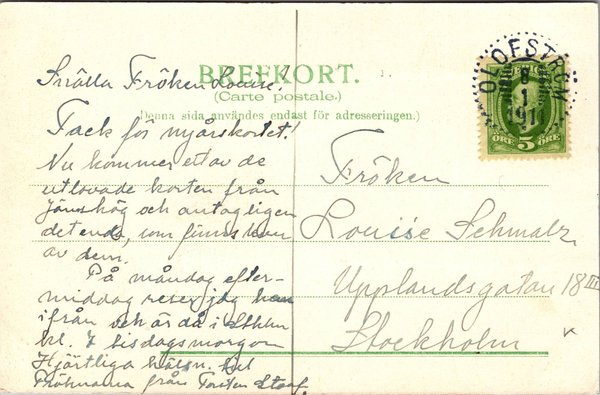 BREFKORT.
(Carte postale.)
Denna sida användes endast för adresseringen.)
Snälla Fröken Louise!
Tack för nyårskortet!
Nu kommer ett av de
utlovade korten från
Jämshög och antagligen
det enda, som finns
av dem.
På måndag efter-
middag reser jag
ifrån och är då i Sthlm
kl. 7 tisdagsmorgon
Hjärtliga hälsn. till
Fröknarna från Torsten Staaf.
Fröken
Louise Schmalz
Upplandsgatan 18 III
Stockholm
OLOFSTRÖM
8
1
191
ÖRE 5 ÖRE